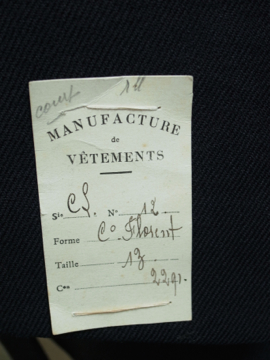 court
MANUFACTURE
de
VÊTEMENTS
Sie CS. No 12
Forme Co Florent
Taille
Ces